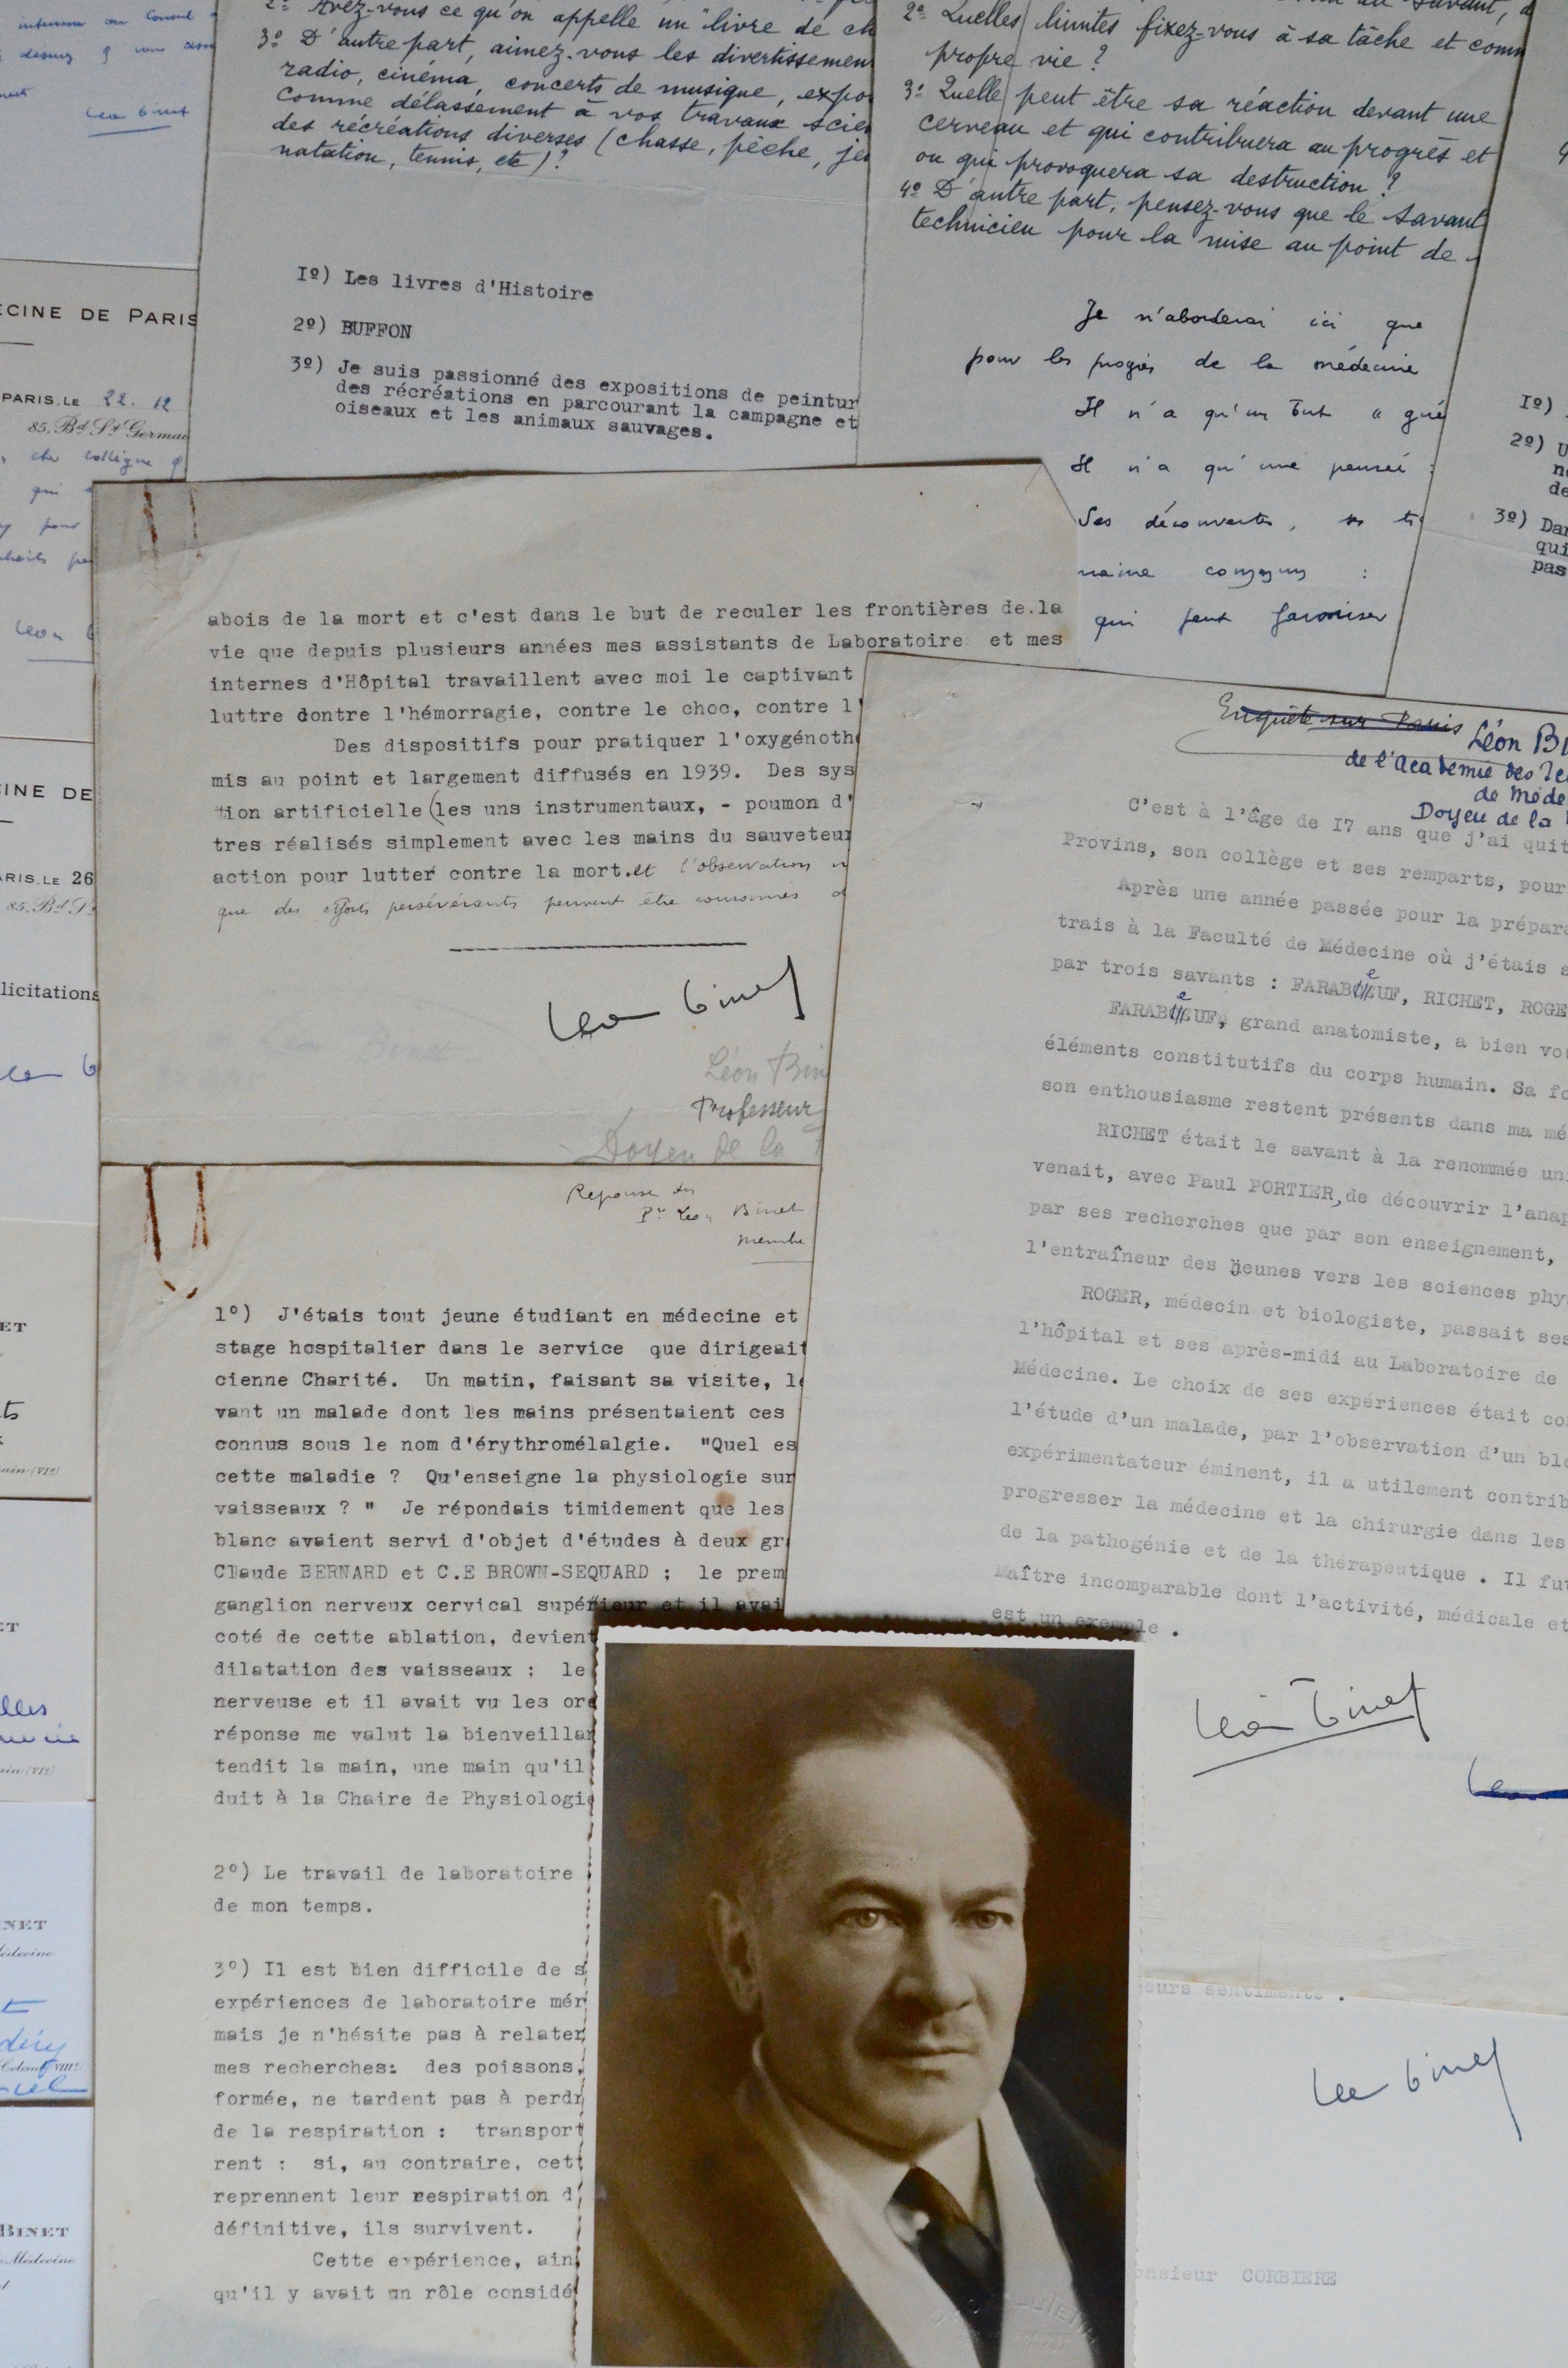 intervenir au Conseil
Léon Binet
ECINE DE PARIS
PARIS, LE 22. 12
85, Bd St Germai
cher collègue
qui
pour
Léon
CINE DE
ARIS, LE 26
85, Bd S
licitations
ET
ain (VIe)
ET
lles
ain (VIe)
NET
édecine
BINET
Médecine
2º Avez-vous ce qu'on appelle un "livre de ch
3º D'autre part, aimez-vous les divertissemen
radio, cinéma, concerts de musique, expo
comme délassement à vos travaux scien
des récréations diverses (chasse, pêche, jeu
natation, tennis, etc)?
1º) Les livres d'Histoire
2º) BUFFON
3º) Je suis passionné des expositions de peintur
des récréations en parcourant la campagne et
oiseaux et les animaux sauvages.
savant, d
2º Quelles limites fixez-vous à sa tâche et comm
propre vie ?
3º Quelle peut être sa réaction devant une
cerveau et qui contribuera au progrès et
ou qui provoquera sa destruction ?
4º D'autre part, pensez-vous que le Savant
technicien pour la mise au point de
Je n'aborderai ici que
pour les progrès de la médecine
Il n'a qu'un but "gué
Il n'a qu'une pensée :
Ses découvertes, ses tr
maine
qui peut favoriser
1º)
2º) U
n
de
3º) Dan
qui
pas
abois de la mort et c'est dans le but de reculer les frontières de.la
vie que depuis plusieurs années mes assistants de Laboratoire et mes
internes d'Hôpital travaillent avec moi le captivant
luttre dontre l'hémorragie, contre le choc, contre l'
Des dispositifs pour pratiquer l'oxygénothé
mis au point et largement diffusés en 1939. Des sys
tion artificielle (les uns instrumentaux, - poumon d'
tres réalisés simplement avec les mains du sauveteur
action pour lutter contre la mort.et l'observation
que des efforts persévérants peuvent être couronnés d
Léon Binet
Léon Bin
Professeur
Doyen de la
Réponse du
Pr Léon Binet
membre
1º) J'étais tout jeune étudiant en médecine et
stage hospitalier dans le service que dirigeait
cienne Charité. Un matin, faisant sa visite, le
vant un malade dont les mains présentaient ces
connus sous le nom d'érythromélalgie. "Quel es
cette maladie ? Qu'enseigne la physiologie sur
vaisseaux ? " Je répondais timidement que les
blanc avaient servi d'objet d'études à deux gr
Claude BERNARD et C.E BROWN-SEQUARD ; le prem
ganglion nerveux cervical supérieur et il avai
coté de cette ablation, devient
dilatation des vaisseaux ; le
nerveuse et il avait vu les ore
réponse me valut la bienveillan
tendit la main, une main qu'il
duit à la Chaire de Physiologie
2º) Le travail de laboratoire
de mon temps.
3º) Il est bien difficile de s
expériences de laboratoire mér
mais je n'hésite pas à relater
mes recherches: des poissons,
formée, ne tardent pas à perdr
de la respiration : transport
rent ; si, au contraire, cett
reprennent leur respiration d'
définitive, ils survivent.
Cette expérience, ain
qu'il y avait un rôle considé
Enquête sur Paris
Léon Bi
de l'Académie des Sci
de Méde
Doyen de la
C'est à l'âge de 17 ans que j'ai quit
Provins, son collège et ses remparts, pour
Après une année passée pour la prépara
trais à la Faculté de Médecine où j'étais s
par trois savants : FARABEUF, RICHET, ROGE
FARABEUF, grand anatomiste, a bien vou
éléments constitutifs du corps humain. Sa fo
son enthousiasme restent présents dans ma mé
RICHET était le savant à la renommée un
venait, avec Paul PORTIER, de découvrir l'anap
par ses recherches que par son enseignement,
l'entraîneur des jeunes vers les sciences phy
ROGER, médecin et biologiste, passait ses
l'hôpital et ses après-midi au Laboratoire de
Médecine. Le choix de ses expériences était co
l'étude d'un malade, par l'observation d'un ble
expérimentateur éminent, il a utilement contrib
progresser la médecine et la chirurgie dans les
de la pathogénie et de la thérapeutique . Il fut
Maître incomparable dont l'activité, médicale et
est un exemple .
Léon Binet
eurs sentiments .
Léon Binet
onsieur CORBIERE